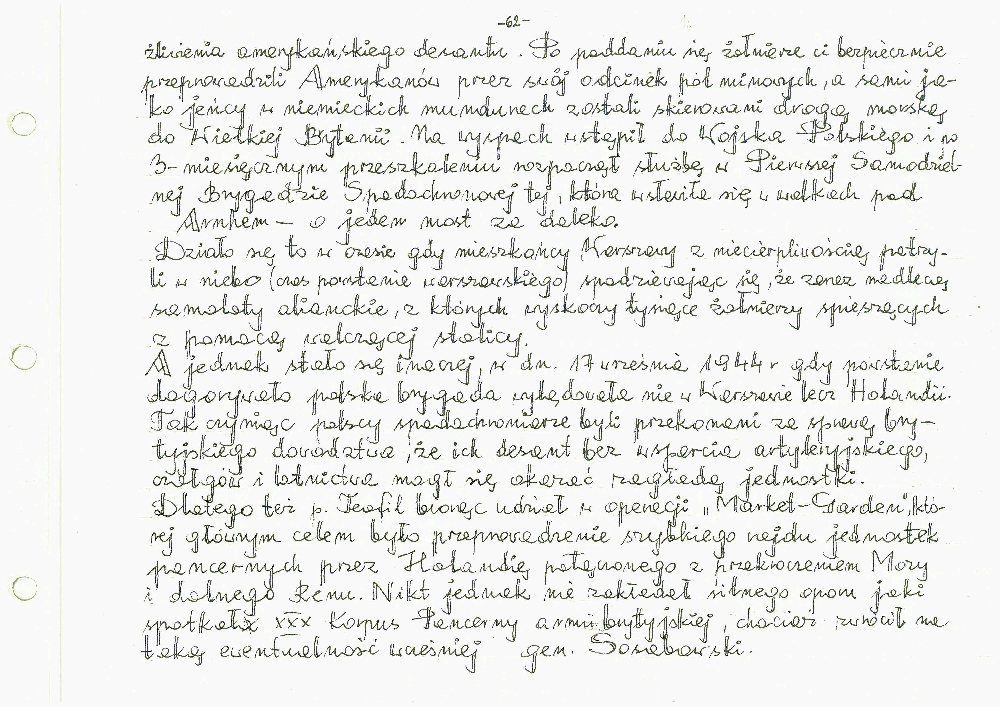 -62-
żliwienia amerykańskiego desantu. Po poddaniu się żołnierze ci bezpiecznie
przeprowadzili Amerykanów przez swój odcinek pól minowych, a sami ja-
ko jeńcy w niemieckich mundurach zostali skierowani drogą morską
do Wielkiej Brytanii. Na wyspach wstąpił do Wojska Polskiego i po
3-miesięcznym przeszkoleniu rozpoczął służbę w Pierwszej Samodziel-
nej Brygadzie Spadochronowej tej, która wsławiła się w walkach pod
Arnhem – o jeden most za daleko.
Działo się to w czasie gdy mieszkańcy Warszawy z niecierpliwością patrzy-
li w niebo (czas powstania warszawskiego) spodziewając się, że zaraz nadlecą
samoloty alianckie, z których wyskoczy tysiące żołnierzy spieszących
z pomocą walczącej stolicy.
A jednak stało się inaczej, w dn. 17 września 1944 r gdy powstanie
dogorywało polska brygada wylądowała nie w Warszawie lecz Holandii.
Tak czyniąc polscy spadochroniarze byli przekonani za sprawą bry-
tyjskiego dowództwa, że ich desant bez wsparcia artyleryjskiego,
czołgów i lotnictwa mógł się okazać zagładą jednostki.
Dlatego też p. Teofil biorąc udział w operacji „Market-Garden", któ-
rej głównym celem było przeprowadzenie szybkiego rajdu jednostek
pancernych przez Holandię połączonego z przekroczeniem Mozy
i dolnego Renu. Nikt jednak nie zakładał silnego oporu jaki
spotkał XXX Korpus Pancerny armii brytyjskiej, chociaż zwrócił na
taką ewentualność wcześniej gen. Sosabowski.